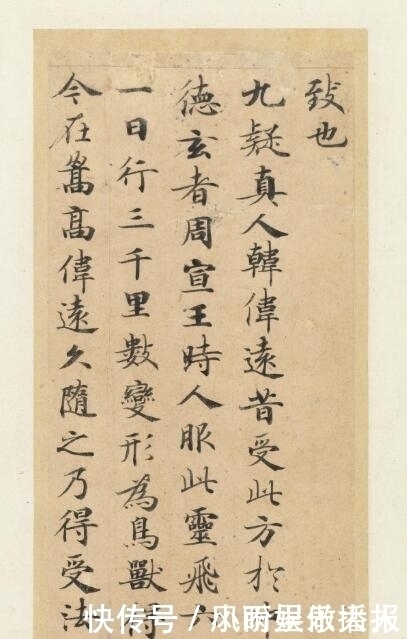 致也
九疑真人韓偉遠昔受此方於
德玄者周宣王時人服此靈飛
一日行三千里數變形為鳥獸
今在嵩高偉遠久隨之乃得受法
快传号/